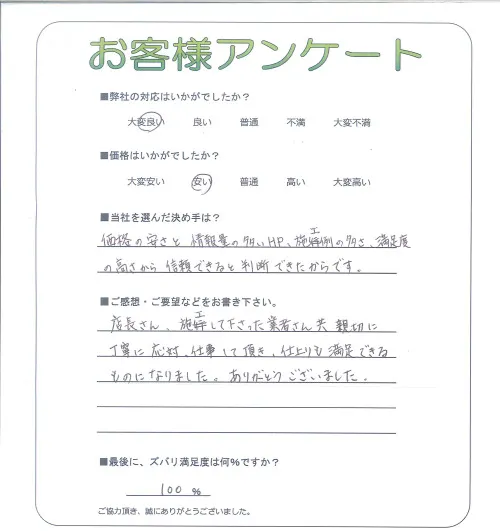 お客様アンケート
■弊社の対応はいかがでしたか？
大変良い 良い 普通 不満 大変不満
■価格はいかがでしたか？
大変安い 安い 普通 高い 大変高い
■当社を選んだ決め手は？
価格の安さと情報量の多いHP、施工例の多さ、満足度
の高さから信頼できると判断できたからです。
■ご感想・ご要望などをお書き下さい。
店長さん、施工して下さった業者さん共親切に
丁寧に応対、仕事して頂き、仕上りも満足できる
ものになりました。ありがとうございました。
■最後に、ズバリ満足度は何％ですか？
100 %
ご協力頂き、誠にありがとうございました。